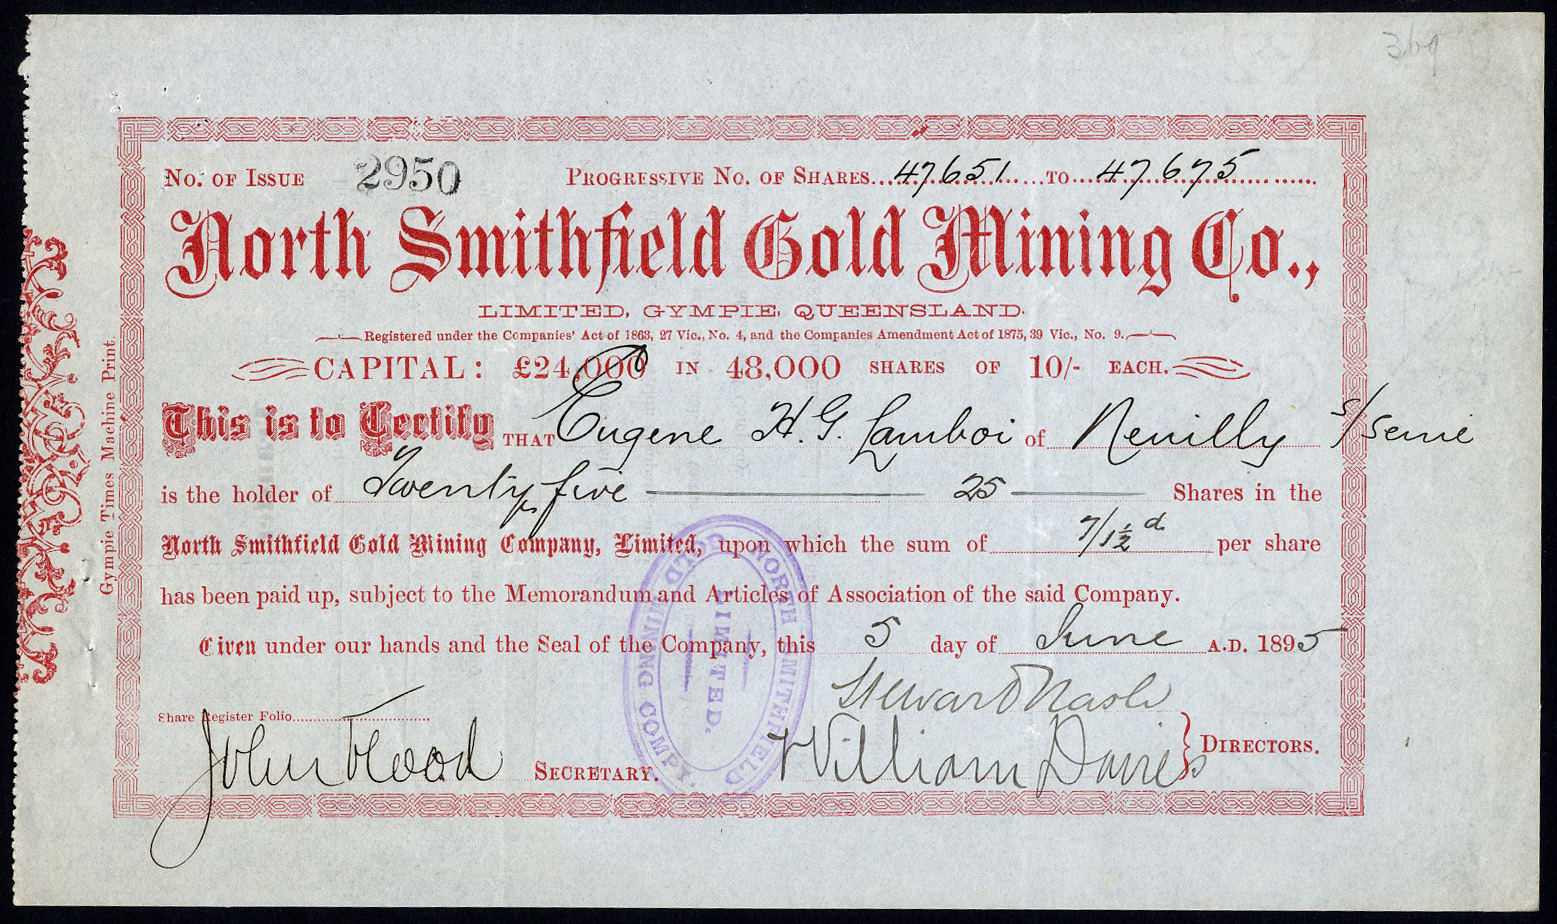 369
No. of Issue 2950 Progressive No. of Shares...47651...to...47675
North Smithfield Gold Mining Co.,
LIMITED, GYMPIE, QUEENSLAND.
Registered under the Companies' Act of 1863, 27 Vic., No. 4, and the Companies Amendment Act of 1875, 39 Vic., No. 9.
CAPITAL: £24,000 IN 48,000 SHARES OF 10/- EACH.
This is to Certify THAT Eugene H. G. Lamboi of Neuilly s/seine
is the holder of Twenty five 25 Shares in the
North Smithfield Gold Mining Company, Limited, upon which the sum of 7/1½d per share
has been paid up, subject to the Memorandum and Articles of Association of the said Company.
Given under our hands and the Seal of the Company, this 5 day of June A.D. 1895
Stewart Nash
Share Register Folio
John Flood Secretary. William Davies Directors.
NORTH SMITHFIELD GOLD MINING COMPY.
LIMITED.
Gympie Times Machine Print.